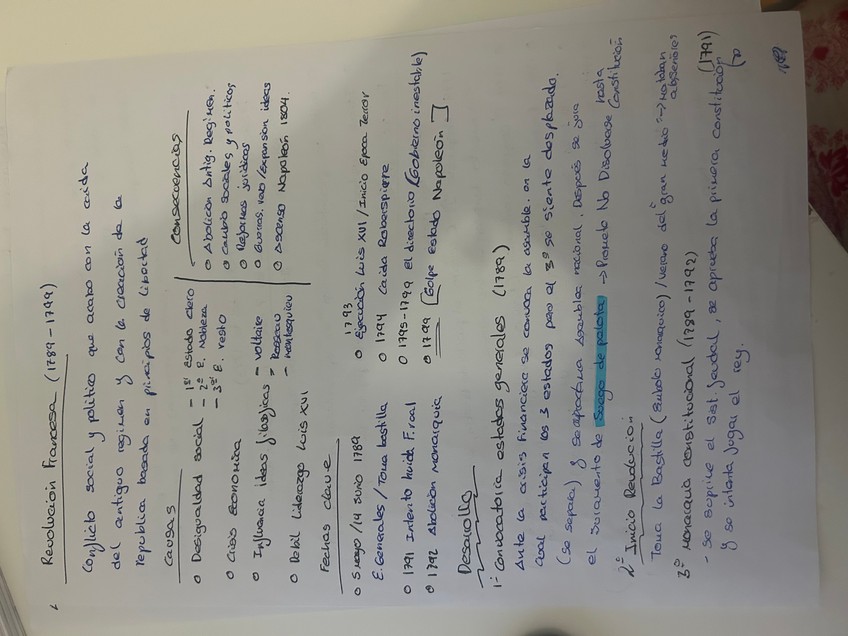 Revolución Francesa (1789-1799)
Conflicto social y politico que acabo con la caida
del antiguo regimen y con la creación de la
republica basada en principios de libertad
Causas
o Desigualdad social - 1er Estado clero
- 2º E. Nobleza
- 3er E. resto
o Crisis económica
o Influencia ideas filosoficas - voltaire
- Roseau
- Montesquieu
o Debil liderazgo Luis XVI
Consecuencias
o Abolicion Antig. Regimen.
o Cambio sociales y politicos
o Reformas juridicas
o Guerras. expansión ideas
o Ascenso Napoleón 1804.
Fechas clave
o 5 mayo / 14 Junio 1789
E. Generales / Toma bastilla
o 1791 Intento huida F. real
o 1792 Abolición monarquia
1793
o Ejecución Luis XVI / Inicio Epoca Terror
o 1794 Caida Robespierre
o 1795-1799 El directorio (Gobierno inestable)
o 1799 [Golpe estado Napoleón]
Desarollo
1º Convocatoria estados generales (1789)
Ante la crisis financiere se convoca la asamble. en la
cual participan los 3 estados pero el 3º se siente desplazado.
(se separa) y se asamblea nacional. Después se jura
el Juramento de Juego de pelota -> Prometo No Disolverse hasta
Constitución
2º Inicio Revolucion
Toma la Bastilla (simbolo monarquico) / verano del gran miedo -> Mataban
3º Monarquia constitucional (1789-1792)
- se suprime el sist feudal, se aprueba la primera constitución (1791)
y se intenta fugar el rey.